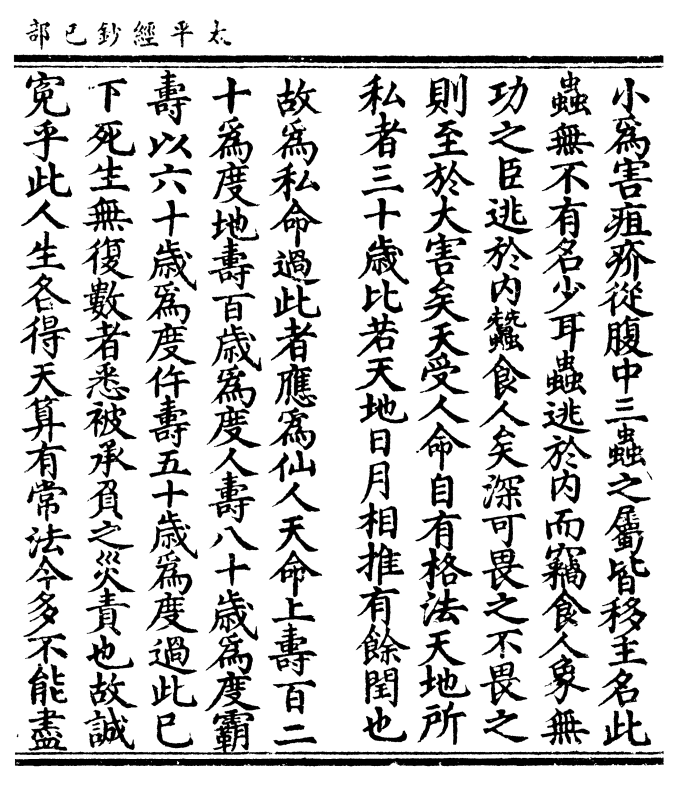 太平經鈔已部
小爲害疽疥從腹中三蟲之屬皆移主名此
蟲無不有名少耳蟲逃於內而竊食人象無
功之臣逃於內蠶食人矣深可畏之不畏之
則至於大害矣天受人命自有格法天地所
私者三十歲比若天地日月相推有餘閏也
故爲私命過此者應爲仙人天命上壽百二
十爲度地壽百歲爲度人壽八十歲爲度霸
壽以六十歲爲度仵壽五十歲爲度過此已
下死生無復數者悉被承負之災責也故誠
寃乎此人生各得天算有常法今多不能盡